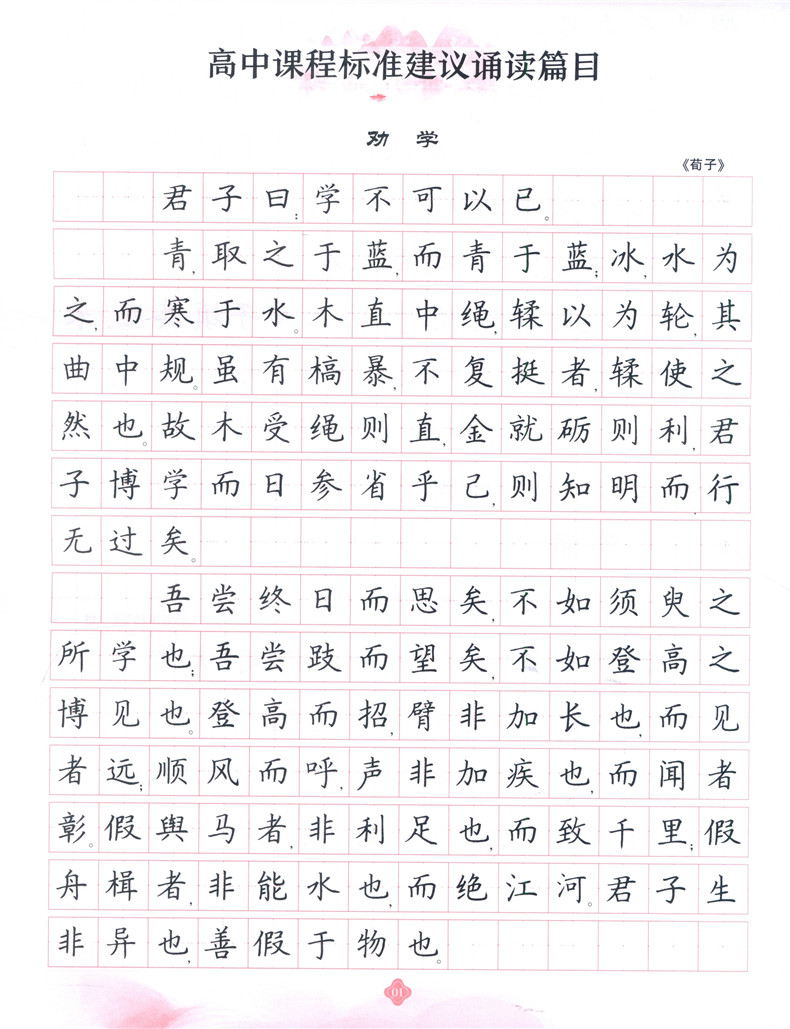 高中课程标准建议诵读篇目
劝 学
《荀子》
君子曰:学不可以已。
青,取之于蓝,而青于蓝;冰,水为
之,而寒于水。木直中绳,鞣以为轮,其
曲中规。虽有槁暴,不复挺者,鞣使之
然也。故木受绳则直,金就砺则利,君
子博学而日参省乎己,则知明而行
无过矣。
吾尝终日而思矣,不如须臾之
所学也;吾尝跂而望矣,不如登高之
博见也。登高而招,臂非加长也,而见
者远;顺风而呼,声非加疾也,而闻者
彰。假舆马者,非利足也,而致千里;假
舟楫者,非能水也,而绝江河。君子生
非异也,善假于物也。
01